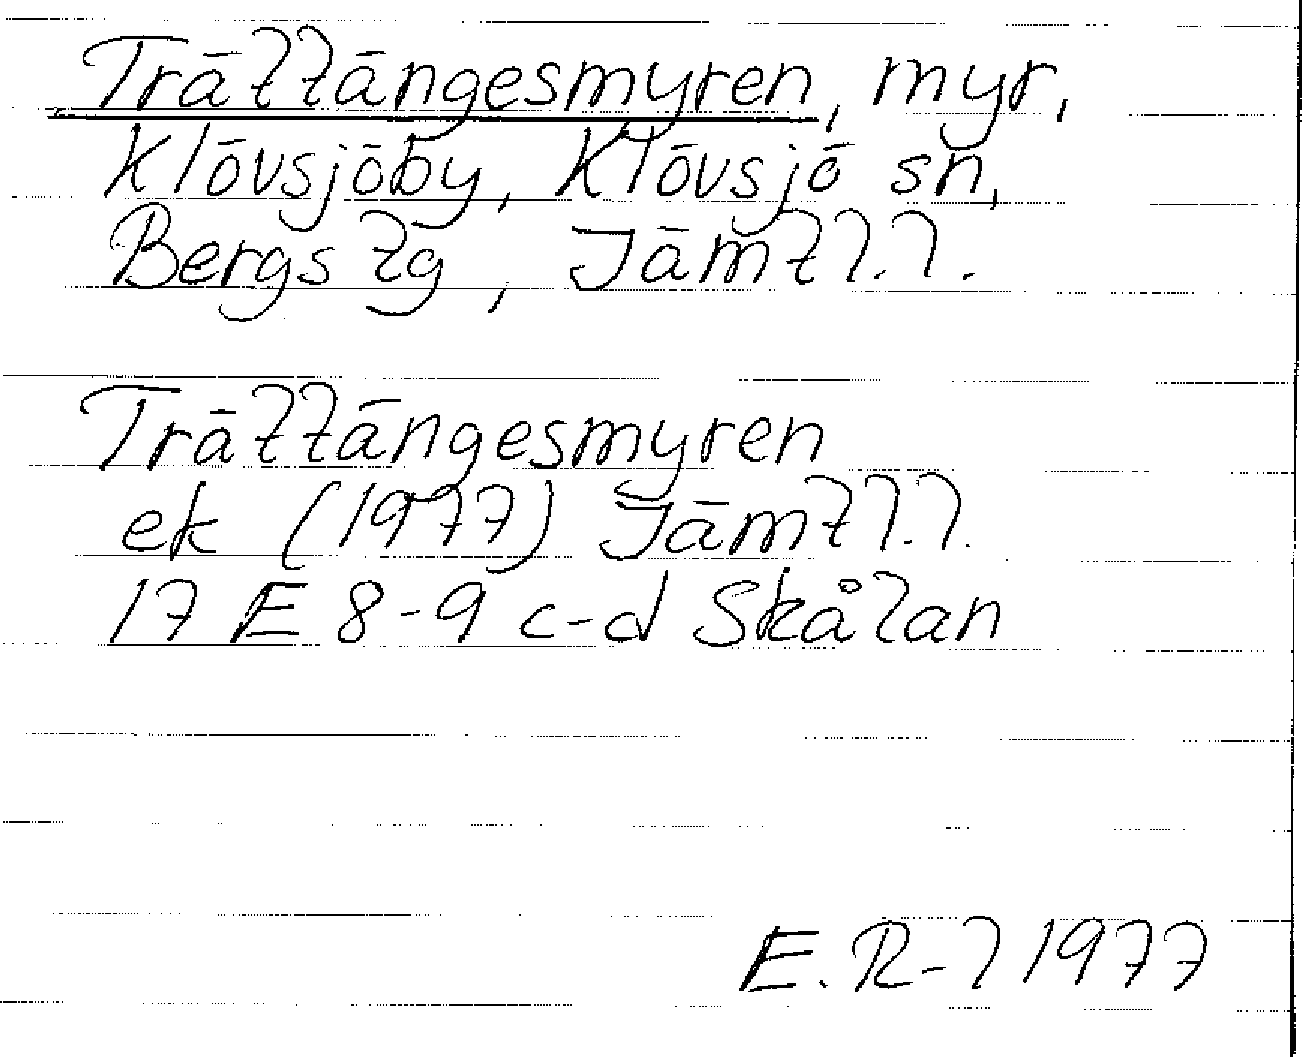 Trättängesmyren, myr,
Klövsjöby, Klövsjö sn,
Bergs tg, Jämtl.l.
Trättängesmyren
ek (1977) Jämtl.l.
17 E 8-9 c-d Skålan
E. R-l 1977